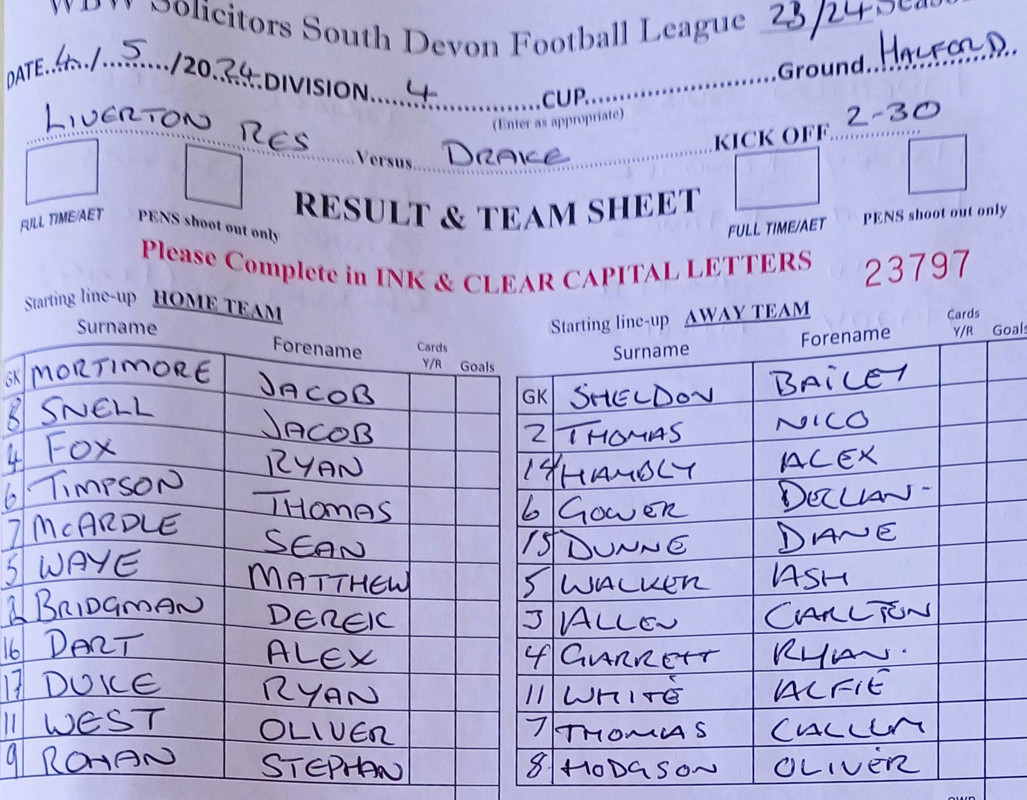 Solicitors South Devon Football League 23/24
DATE 4/5/2024 DIVISION 4 CUP Ground HALFORD
(Enter as appropriate)
LIVERTON RES Versus DRAKE KICK OFF 2-30
FULL TIME/AET PENS shoot out only RESULT & TEAM SHEET FULL TIME/AET PENS shoot out only
Please Complete in INK & CLEAR CAPITAL LETTERS 23797
Starting line-up HOME TEAM
Surname Forename Cards Y/R Goals
GK MORTIMORE JACOB
8 SNELL JACOB
4 FOX RYAN
6 TIMPSON THOMAS
7 McARDLE SEAN
5 WAYE MATTHEW
2 BRIDGMAN DEREK
16 DART ALEX
17 DUKE RYAN
11 WEST OLIVER
9 ROHAN STEPHAN
Starting line-up AWAY TEAM
Surname Forename Cards Y/R Goals
GK SHELDON BAILEY
2 THOMAS NICO
14 HAMBLY ALEX
6 GOWER DECLAN
15 DUNNE DIANE
5 WALKER ASH
3 ALLEN CARLTON
4 GARRETT RYAN
11 WHITE ALFIE
7 THOMAS CALLUM
8 HODGSON OLIVER